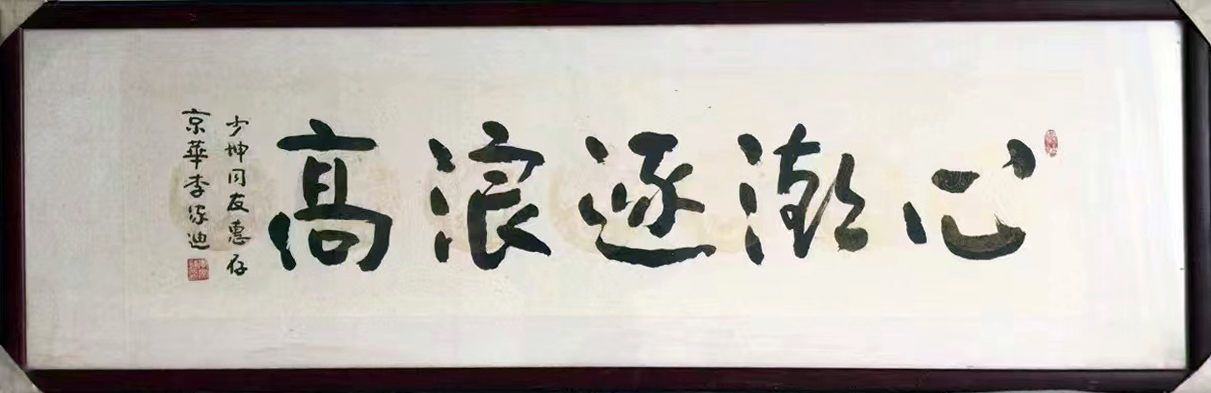 心潮逐浪高
少坤同友惠存
京華李家迪